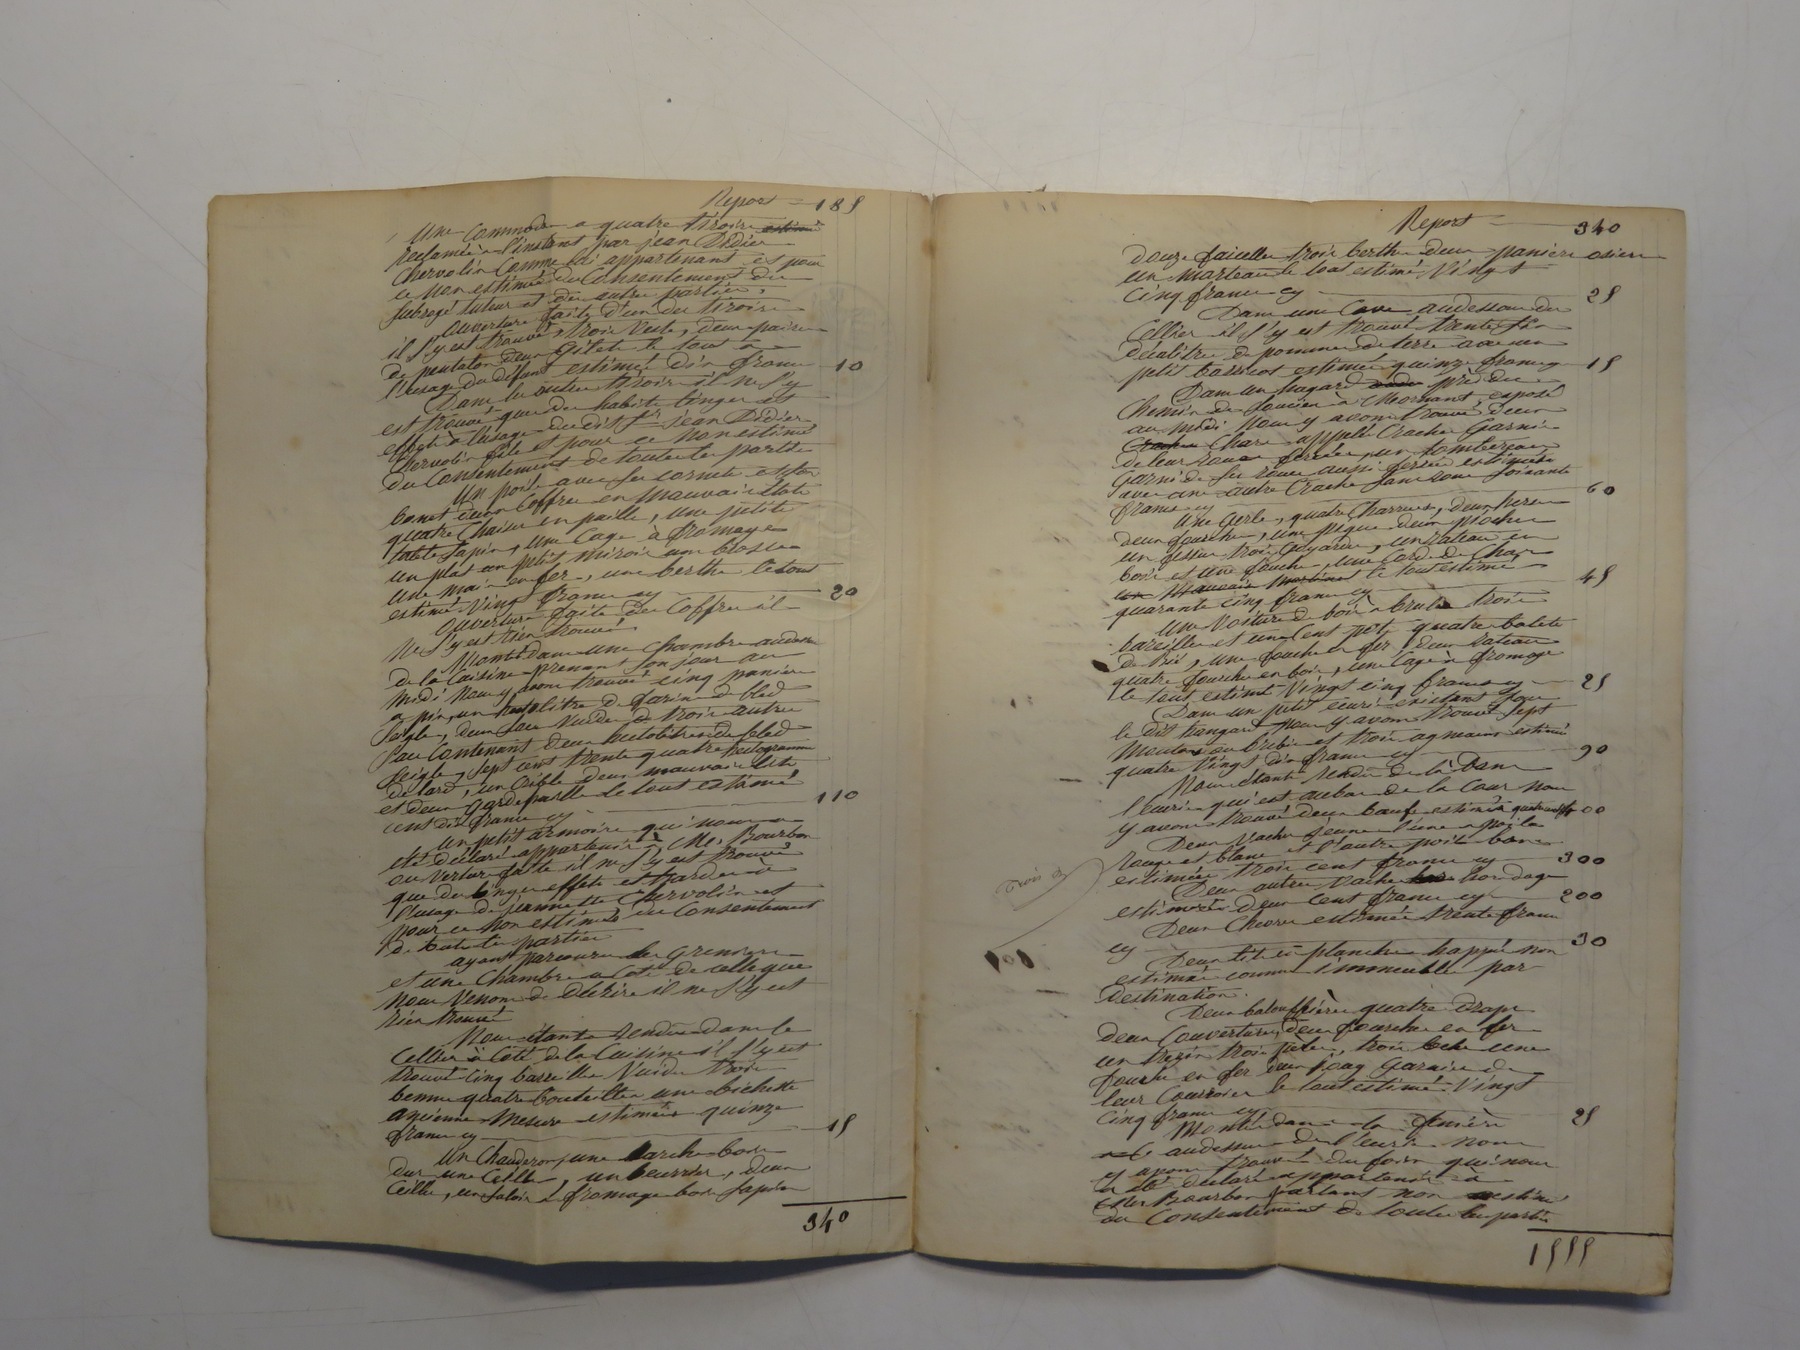 Report = 185
Une Commode a quatre tiroirs estimé
reclamée à l'instant par jean Didier
Chervolin Comme lui appartenant et pour
ce non estimée du Consentement du
subrogé tuteur et des autres parties,
ouverture faite d'un des tiroirs
il s'y est trouvé trois Veste, deux paires
de pantalon deux Gilets le tout à
l'usage du défunt estimé dix francs 10
Dans les autres tiroirs il ne s'y
est trouvé que des habits linges et
effets à l'usage du dit jean Didier
Chervolin fils et pour ce non estimé
du Consentement de toutes les parties
Un poile avec ses cornets
deux Coffres en mauvais état
quatre Chaises en paille, une petite
table sapin, une Cage à fromage
un plat un petit miroir une
une mai en fer, une berthe le tout
estimé Vingt francs cy 20
Ouverture faite des Coffres il
ne s'y est rien trouvé
Monté dans une Chambre audessus
de la Cuisine prenant son jour au
midi nous y avons trouvé cinq paniers
a pin, un hectolitre de farine de bled
seigle, deux sacs Vuides et trois autres
sacs Contenant deux hectolitres de bled
seigle, sept cent trente quatre
de lard, un Crible deux mauvais lits
et deux gardepaille le tout estimé
cent dix francs cy 110
Un petit armoire qui nous a
été déclaré appartenir à Me. Bourbon
ouverture faite il ne s'y est trouvé
que des linges effets et hardes à
l'usage de jeannette Chervolin et
pour ce non estimés du Consentement
de toutes les parties
ayant parcouru les Greniers
et une Chambre à Coté de celle que
nous Venons de décrire il ne s'y est
rien trouvé
Nous étants rendus dans le
Cellier à Coté de la Cuisine il s'y est
trouvé Cinq barreilles Vuides trois
bennes quatre bouteilles une bichette
ancienne mesure estimées quinze
francs cy 15
Un Chauderon, une Marche bois
dur une Ceille, un beurrier, deux
Ceilles, un saloir à fromage bois sapin
340
Report = 340
douze faicelles trois berthes deux paniers osiers
un marteau le tout estimé Vingt
Cinq francs cy 25
Dans une Cave audessous du
Cellier il s'y est trouvé trente six
décalitres de pommes de terre avec un
petit barricot estimés quinze francs 15
Dans un hagard près du
Chemin de Soucieu à Mornant, exposé
au midi Nous y avons trouvé deux
Chars appellés Craches Garnis
de leurs roues ferrées, un tombereau
Garni de ses roues aussi ferrées estimés
avec une autre Crache sans roue soixante
francs cy 60
Une Gerle, quatre Charrues, deux herses
deux fourches, une pigue deux pioches
un trois Goyardes, un rateau en
bois et une fauche, une Corde de Char
le tout estimé
quarante cinq francs cy 45
Une Voiture de bois a bruler trois
bareilles et un Cent pot quatre
une fourche en fer deux rateaux
quatre fourches en bois, une Cage à fromage
le tout estimé Vingt cinq francs cy 25
Dans un petit ecurie existant sous
le dit hangard nous y avons trouvé sept
Moutons ou brebis et trois agneaux estimés
quatre Vingt dix francs cy 90
Nous étant rendus de là dans
l'ecurie qui est au bas de la Cour nous
y avons trouvé deux bœufs estimés quatre cents fr 400
Deux Vaches jeunes l'une a poil
rouge et blanc et l'autre poil blanc
estimées trois cent francs cy 300
Deux autres Vaches hors d'age
estimées deux cent francs cy 200
Deux Chevres estimées trente francs
cy 30
Deux lits en planches non
estimés comme immeuble par
destination.
Deux quatre Draps
deux Couvertures, deux fourches en fer
un trois
fourche en fer deux joug Garnis de
leurs Courroies le tout estimé Vingt
Cinq francs cy 25
Monté dans la fenière
audessus de l'ecurie nous
y avons trouvé du foin qui nous
a été déclaré appartenir à
Bourbon partant non estimé
du Consentement de toutes les parties
1555